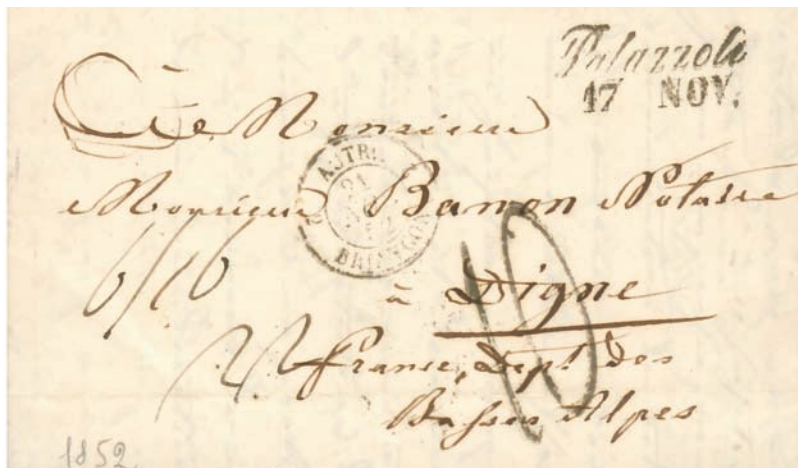 Palazzolo
17 NOV.
À Monsieur
Monsieur Banon Notaire
AUTR.
21
52
BRIANÇON
6/16
10
à Digne
France, Dept. des
Basses Alpes
1852